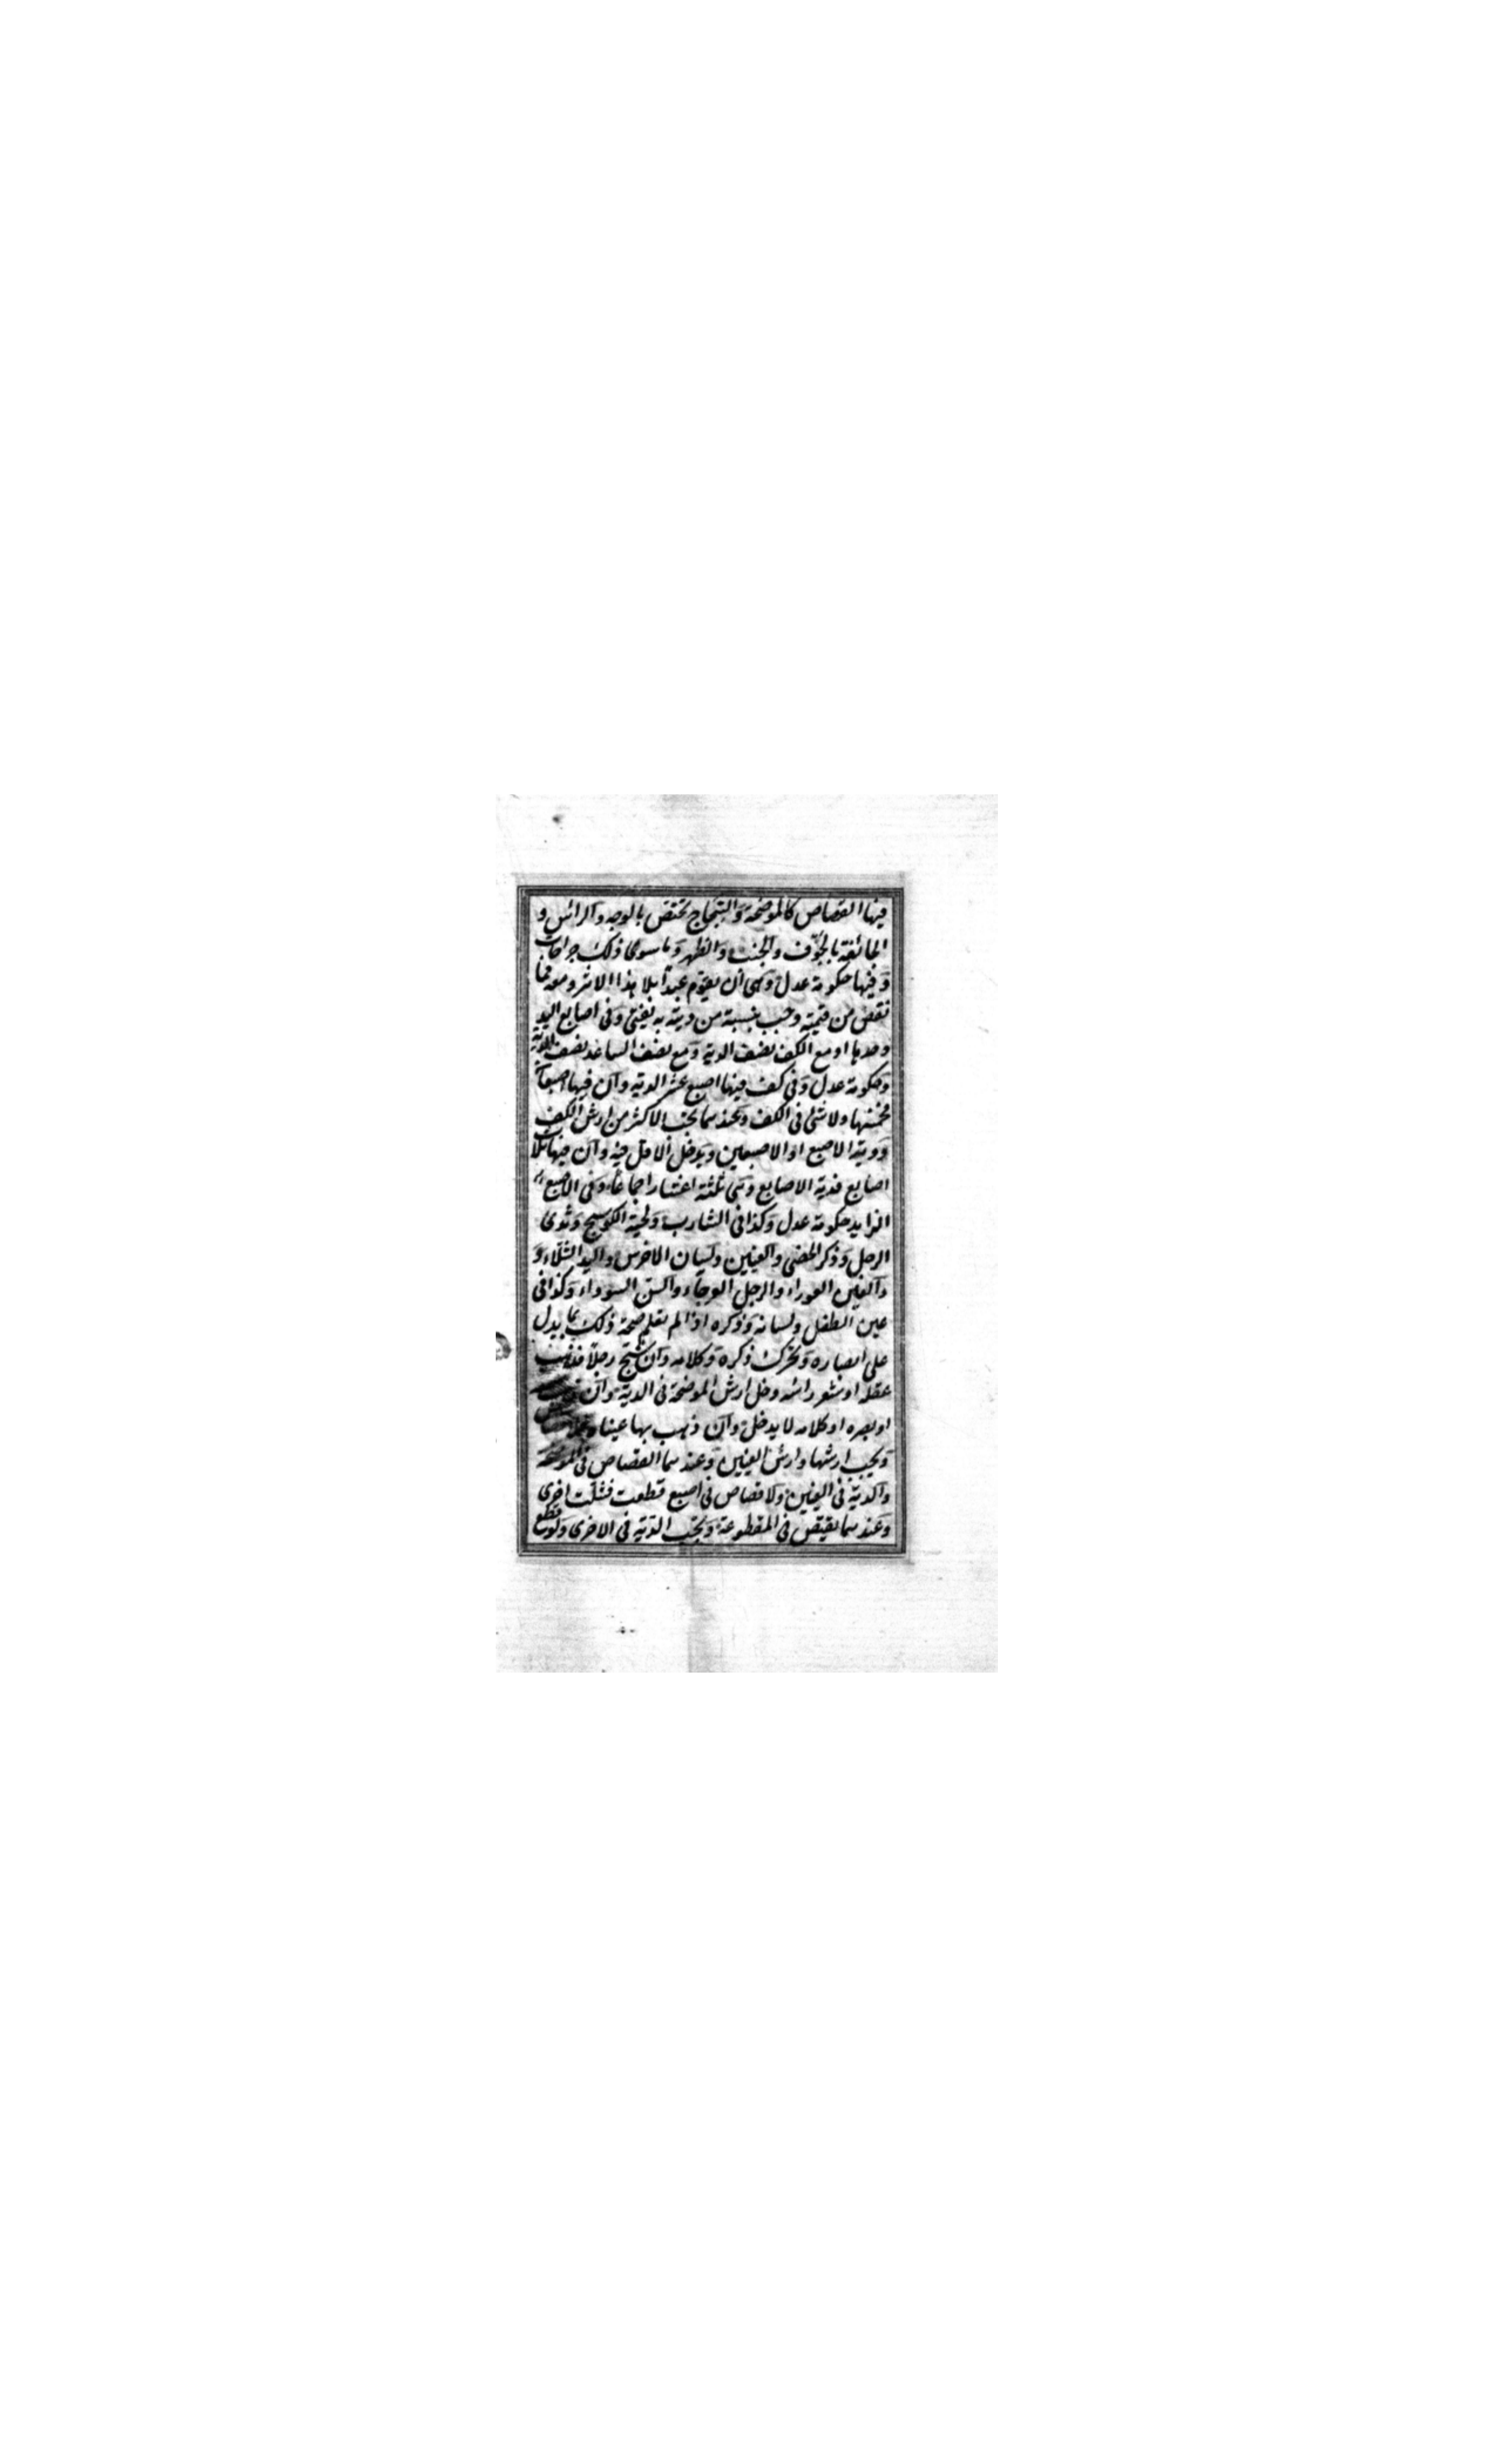 فيها القصاص كالموضحة والشجاج تختص بالوجه والرأس و
الجائفة بالجوف والجنب والظهر وما سوى ذلك جراحات
وفيها حكومة عدل وهى أن يقوم عبدا بلا هذا الاثر ومعه فما
نقص من قيمته وجب بنسبة من ديته به يفتى وفى اصابع اليد
وحدها او مع الكف نصف الدية ومع نصف الساعد نصف الدية
وحكومة عدل وفى كف فيها اصبع عشر الدية وان فيها اصبعان
فخمسها ولا شئ فى الكف وعندهما يجب الاكثر من ارش الكف
ودية الاصبع او الاصبعين ويدخل الاقل فيه وان فيها ثلاث
اصابع فدية الاصابع وهى ثلثة اعشار اجماعا وفى الاصبع
الزايد حكومة عدل وكذا فى الشارب ولحية الكوسج وثدى
الرجل وذكر الخصى والعنين ولسان الاخرس واليد الشلاء و
والعين العوراء والرجل العرجاء والسن السوداء وكذا فى
عين الطفل ولسانه وذكره اذا لم تعلم صحة ذلك بما يدل
على ابصاره وتحرك ذكره وكلامه وان شج رجلا فذهب
عقله او شعر راسه دخل ارش الموضحة فى الدية وان
او بصره او كلامه لا يدخل وان ذهب بها عيناه فلا
ويجب ارشها وارش العينين وعندهما القصاص فى الموضحة
والدية فى العينين ولا قصاص فى اصبع قطعت فشلت اخرى
وعندهما يقتص فى المقطوعة وتجب الدية فى الاخرى ولو قطع